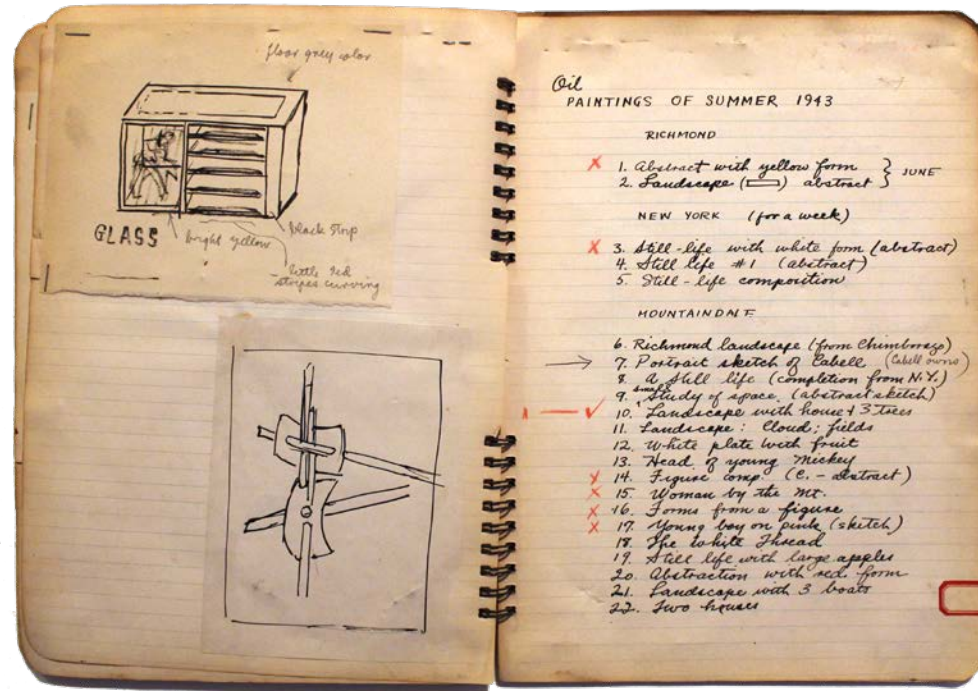 floor grey color
GLASS
bright yellow
black strip
little red
stripes curving
Oil
PAINTINGS OF SUMMER 1943
RICHMOND
x 1. Abstract with yellow form } JUNE
2. Landscape ( ) abstract
NEW YORK (for a week)
x 3. Still-life with white form (abstract)
4. Still life #1 (abstract)
5. Still-life composition
MOUNTAINDALE
6. Richmond landscape (from Chimborazo)
→ 7. Portrait sketch of Cabell (Cabell owns)
8. A Still life (completion from N.Y.)
9. small Study of space (abstract sketch)
x — ✓ 10. Landscape with house + 3 trees
11. Landscape: Cloud; fields
12. White plate with fruit
13. Head of young Mickey
x 14. Figure comp. (C. - abstract)
x 15. Woman by the Mt.
x 16. Forms from a figure
x 17. Young boy on pink (sketch)
18. The White Thread
19. Still life with large apples
20. Abstraction with red form
21. Landscape with 3 boats
22. Two houses